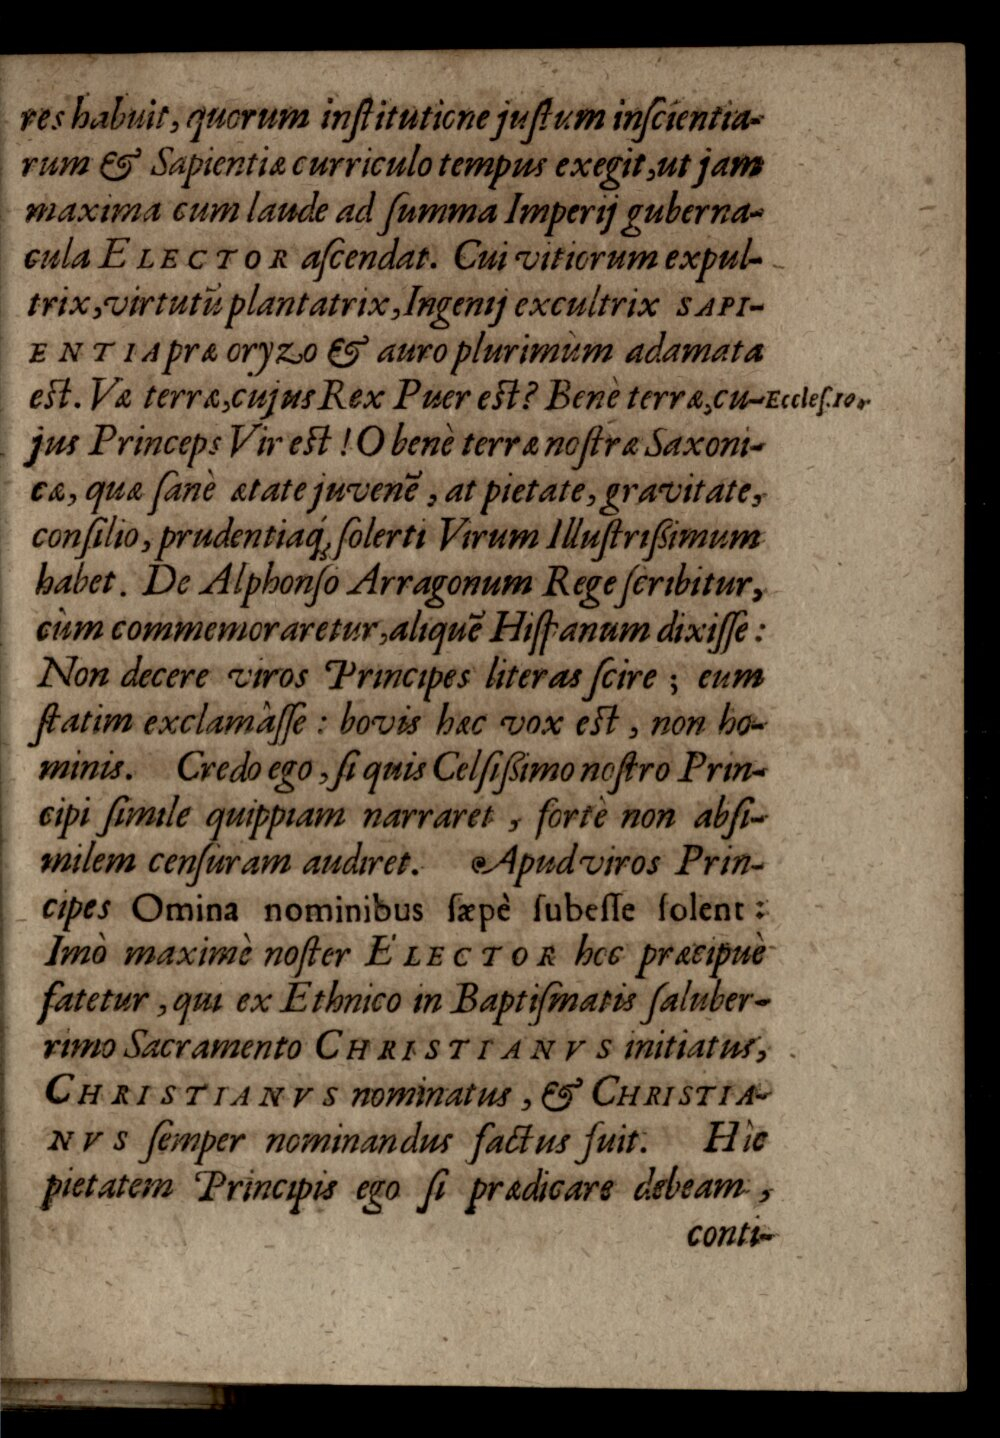 res habuit, quorum inſtitutione juſtum in ſcientia-
rum & Sapientiæ curriculo tempus exegit, ut jam
maxima cum laude ad ſumma Imperij guberna-
cula ELECTOR aſcendat. Cui vitiorum expul-
trix, virtutũ plantatrix, Ingenij excultrix SAPI-
ENTIA præ oryzo & auro plurimùm adamata
est. Væ terræ, cujus Rex Puer est? Benè terræ, cu-
Eccleſ. 10.
jus Princeps Vir est! O benè terræ noſtræ Saxoni-
cæ, quæ ſanè ætate juvenẽ, at pietate, gravitate,
conſilio, prudentiaq́; ſolerti Virum Illuſtrißimum
habet. De Alphonſo Arragonum Rege ſcribitur,
cùm commemoraretur, aliquẽ Hiſpanum dixiſſe:
Non decere viros Principes literas ſcire; eum
ſtatim exclamâſſe: bovis hæc vox est, non ho-
minis. Credo ego, ſi quis Celſißimo noſtro Prin-
cipi ſimile quippiam narraret, fortè non abſi-
milem cenſuram audiret. Apud viros Prin-
cipes Omina nominibus ſæpè ſubeſſe ſolent:
Imò maximè noſter ELECTOR hoc præcipuè
fatetur, qui ex Ethnico in Baptiſmatis ſaluber-
rimo Sacramento CHRISTIANVS initiatus,
CHRISTIANVS nominatus, & CHRISTIA-
NVS ſemper nominandus factus fuit. Hìc
pietatem Principis ego ſi prædicare debeam,
conti-